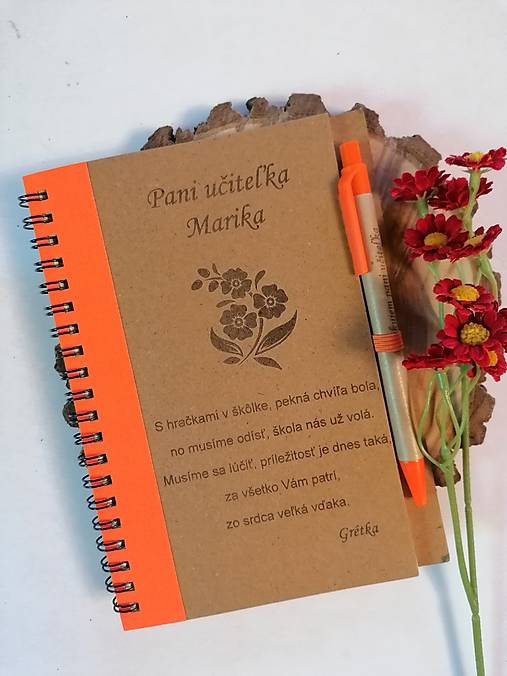 Pani učiteľka
Marika
S hračkami v škôlke, pekná chvíľa bola,
no musíme odísť, škola nás už volá.
Musíme sa lúčiť, príležitosť je dnes taká,
za všetko Vám patrí,
zo srdca veľká vďaka.
Grétka
pani učiteľka